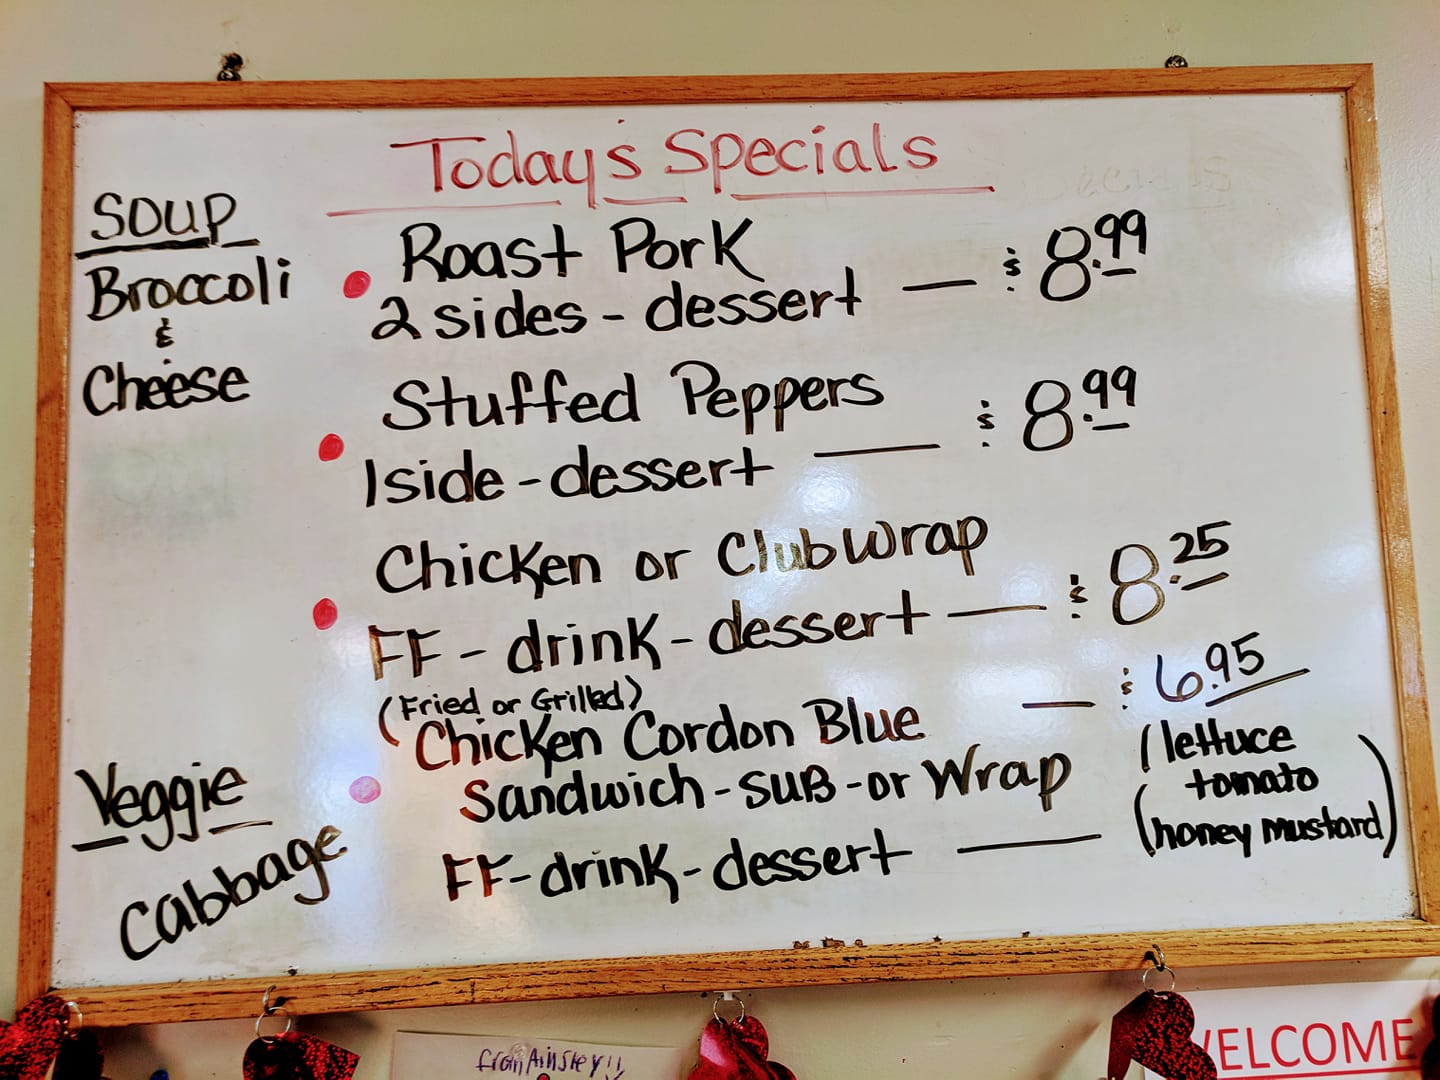 Today's Specials
SOUP
Broccoli
&
Cheese
Roast Pork
2 sides - dessert — $8.99
Stuffed Peppers
1 side - dessert — $8.99
Chicken or Club Wrap
FF - drink - dessert — $8.25
(Fried or Grilled)
Chicken Cordon Blue — $6.95
Sandwich - SUB - or Wrap
FF - drink - dessert —
(lettuce
tomato
honey mustard)
Veggie
Cabbage
from Ainsley!!
WELCOME